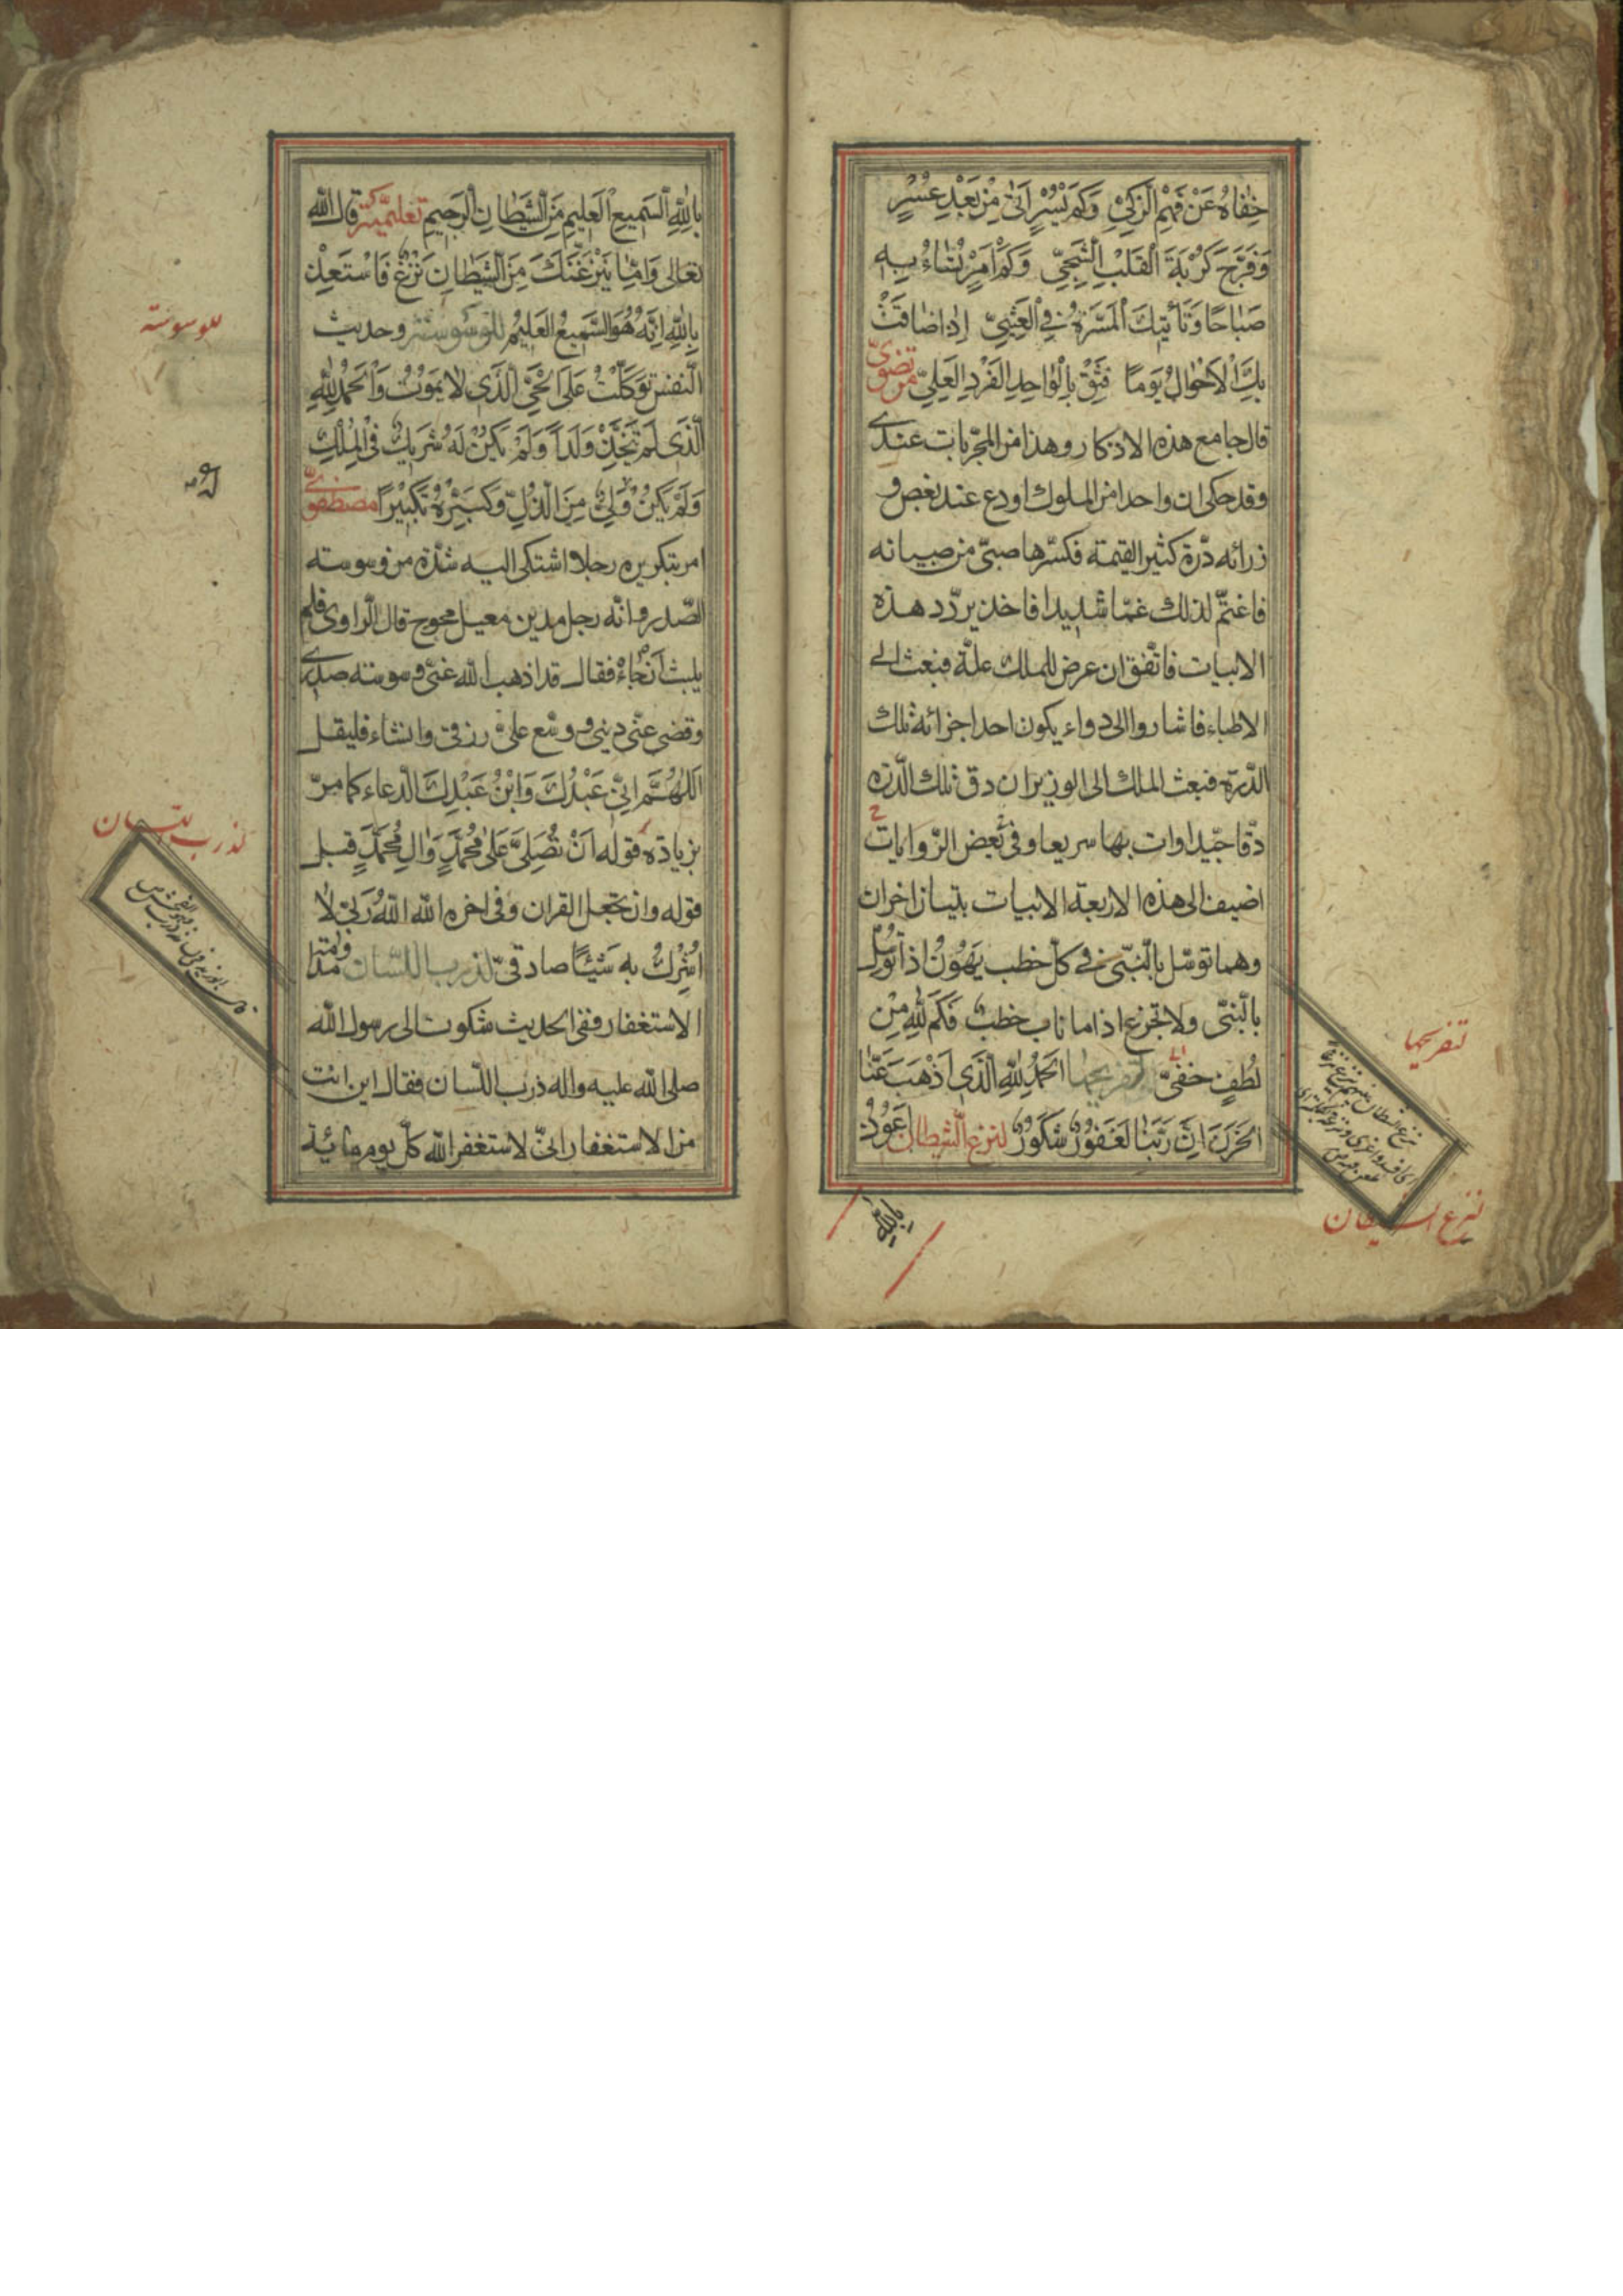 خِفَاهُ عَنْ فَهْمِ الزَّكِيِّ وَكَمْ يُسْرٍ اَتٰى مِنْ بَعْدِ عُسْرٍ
وَفَرَّجَ كَرْبَةَ الْقَلْبِ الشَّجِيِّ وَكَمْ اَمْرٍ تُسَاءُ بِهِ
صَبَاحًا وَتَأْتِيكَ الْمَسَرَّةُ فِي الْعَشِيِّ اِذَا ضَاقَتْ
بِكَ الْاَحْوَالُ يَوْمًا فَثِقْ بِالْوَاحِدِ الْفَرْدِ الْعَلِيِّ مرتضوىّ
قال جامع هذه الاذكار وهذا من المجرّبات عندى
وقد حكى ان واحدا من الملوك اودع عند بعض و
زرائه درّة كثير القيمة فكسّرها صبىّ من صبيانه
فاغتمّ لذلك غمّا شديدا فاخذ يردّد هذه
الابيات فاتّفق ان عرض للملك علّة فبعث الى
الاطباء فاشاروا الى دواء يكون احد اجزائه تلك
الدّرّة فبعث الملك الى الوزير ان دق تلك الدّرة
دقّا جيّدا وات بها سريعا وفى بعض الرّوايات
اضيف الى هذه الاربعة الابيات بتيان اخران
وهما توسّل بالنّبىّ فى كلّ خطب يَهُونُ اذا تُوُسِّلَ
بالنّبىّ ولا تجزع اذا ما ناب خطب فَكَمْ لِلّٰهِ مِنْ
لُطْفٍ خَفِىٍّ تفريحيها اَلْحَمْدُ لِلّٰهِ الَّذِى اَذْهَبَ عَنَّا
الحَزَنَ اِنَّ رَبَّنَا لَغَفُورٌ شَكُورٌ لنزع الشّيطان اَعُوذُ
بِاللّٰهِ
تفريحها
لنزع الشيطان
بِاللّٰهِ السَّمِيعِ الْعَلِيمِ مِنَ الشَّيْطَانِ الرَّجِيمِ تعليميّة قال اللّٰه
تعالى وَاِمَّا يَنْزَغَنَّكَ مِنَ الشَّيْطَانِ نَزْغٌ فَاسْتَعِذْ
بِاللّٰهِ اِنَّهُ هُوَ السَّمِيعُ الْعَلِيمُ للوسوسة وحديث
النّفس تَوَكَّلْتُ عَلَى الْحَىِّ الَّذِى لَا يَمُوتُ وَالْحَمْدُ لِلّٰهِ
الَّذِى لَمْ يَتَّخِذْ وَلَدًا وَلَمْ يَكُنْ لَهُ شَرِيكٌ فِى الْمُلْكِ
وَلَمْ يَكُنْ وَلِىٌّ مِنَ الذُّلِّ وَكَبِّرْهُ تَكْبِيْرًا مصطفوىّ
امر بتكريره رجلا اشتكى اليه شدّة من وسوسته
الصّدر وانّه رجل مدين معيل محوج قال الرّاوى فلم
يلبث ان جاءه فقال قد اذهب اللّٰه عنّى وسوسته صدرى
وقضى عنّى دينى ووسّع علىّ رزقى وانشاء فليقل
اَللّٰهُمَّ اِنِّى عَبْدُكَ وَابْنُ عَبْدِكَ الدّعاء كما مرّ
بزيادة قوله اَنْ تُصَلِّىَ عَلٰى مُحَمَّدٍ وَّاٰلِ مُحَمَّدٍ قبل
قوله وان تجعل القران وفى اخره اللّٰه اللّٰهُ رَبِّىْ لَا
اُشْرِكُ بِهِ شَيْئًا صادقىّ لذرب اللّسان
الاستغفار ففى الحديث شكوت الى رسول اللّٰه
صلى اللّٰه عليه واله ذرب اللّسان فقال اين انت
من الاستغفار انىّ لاستغفر اللّٰه كلّ يوم مائة
للوسوسة
لذرب اللسان